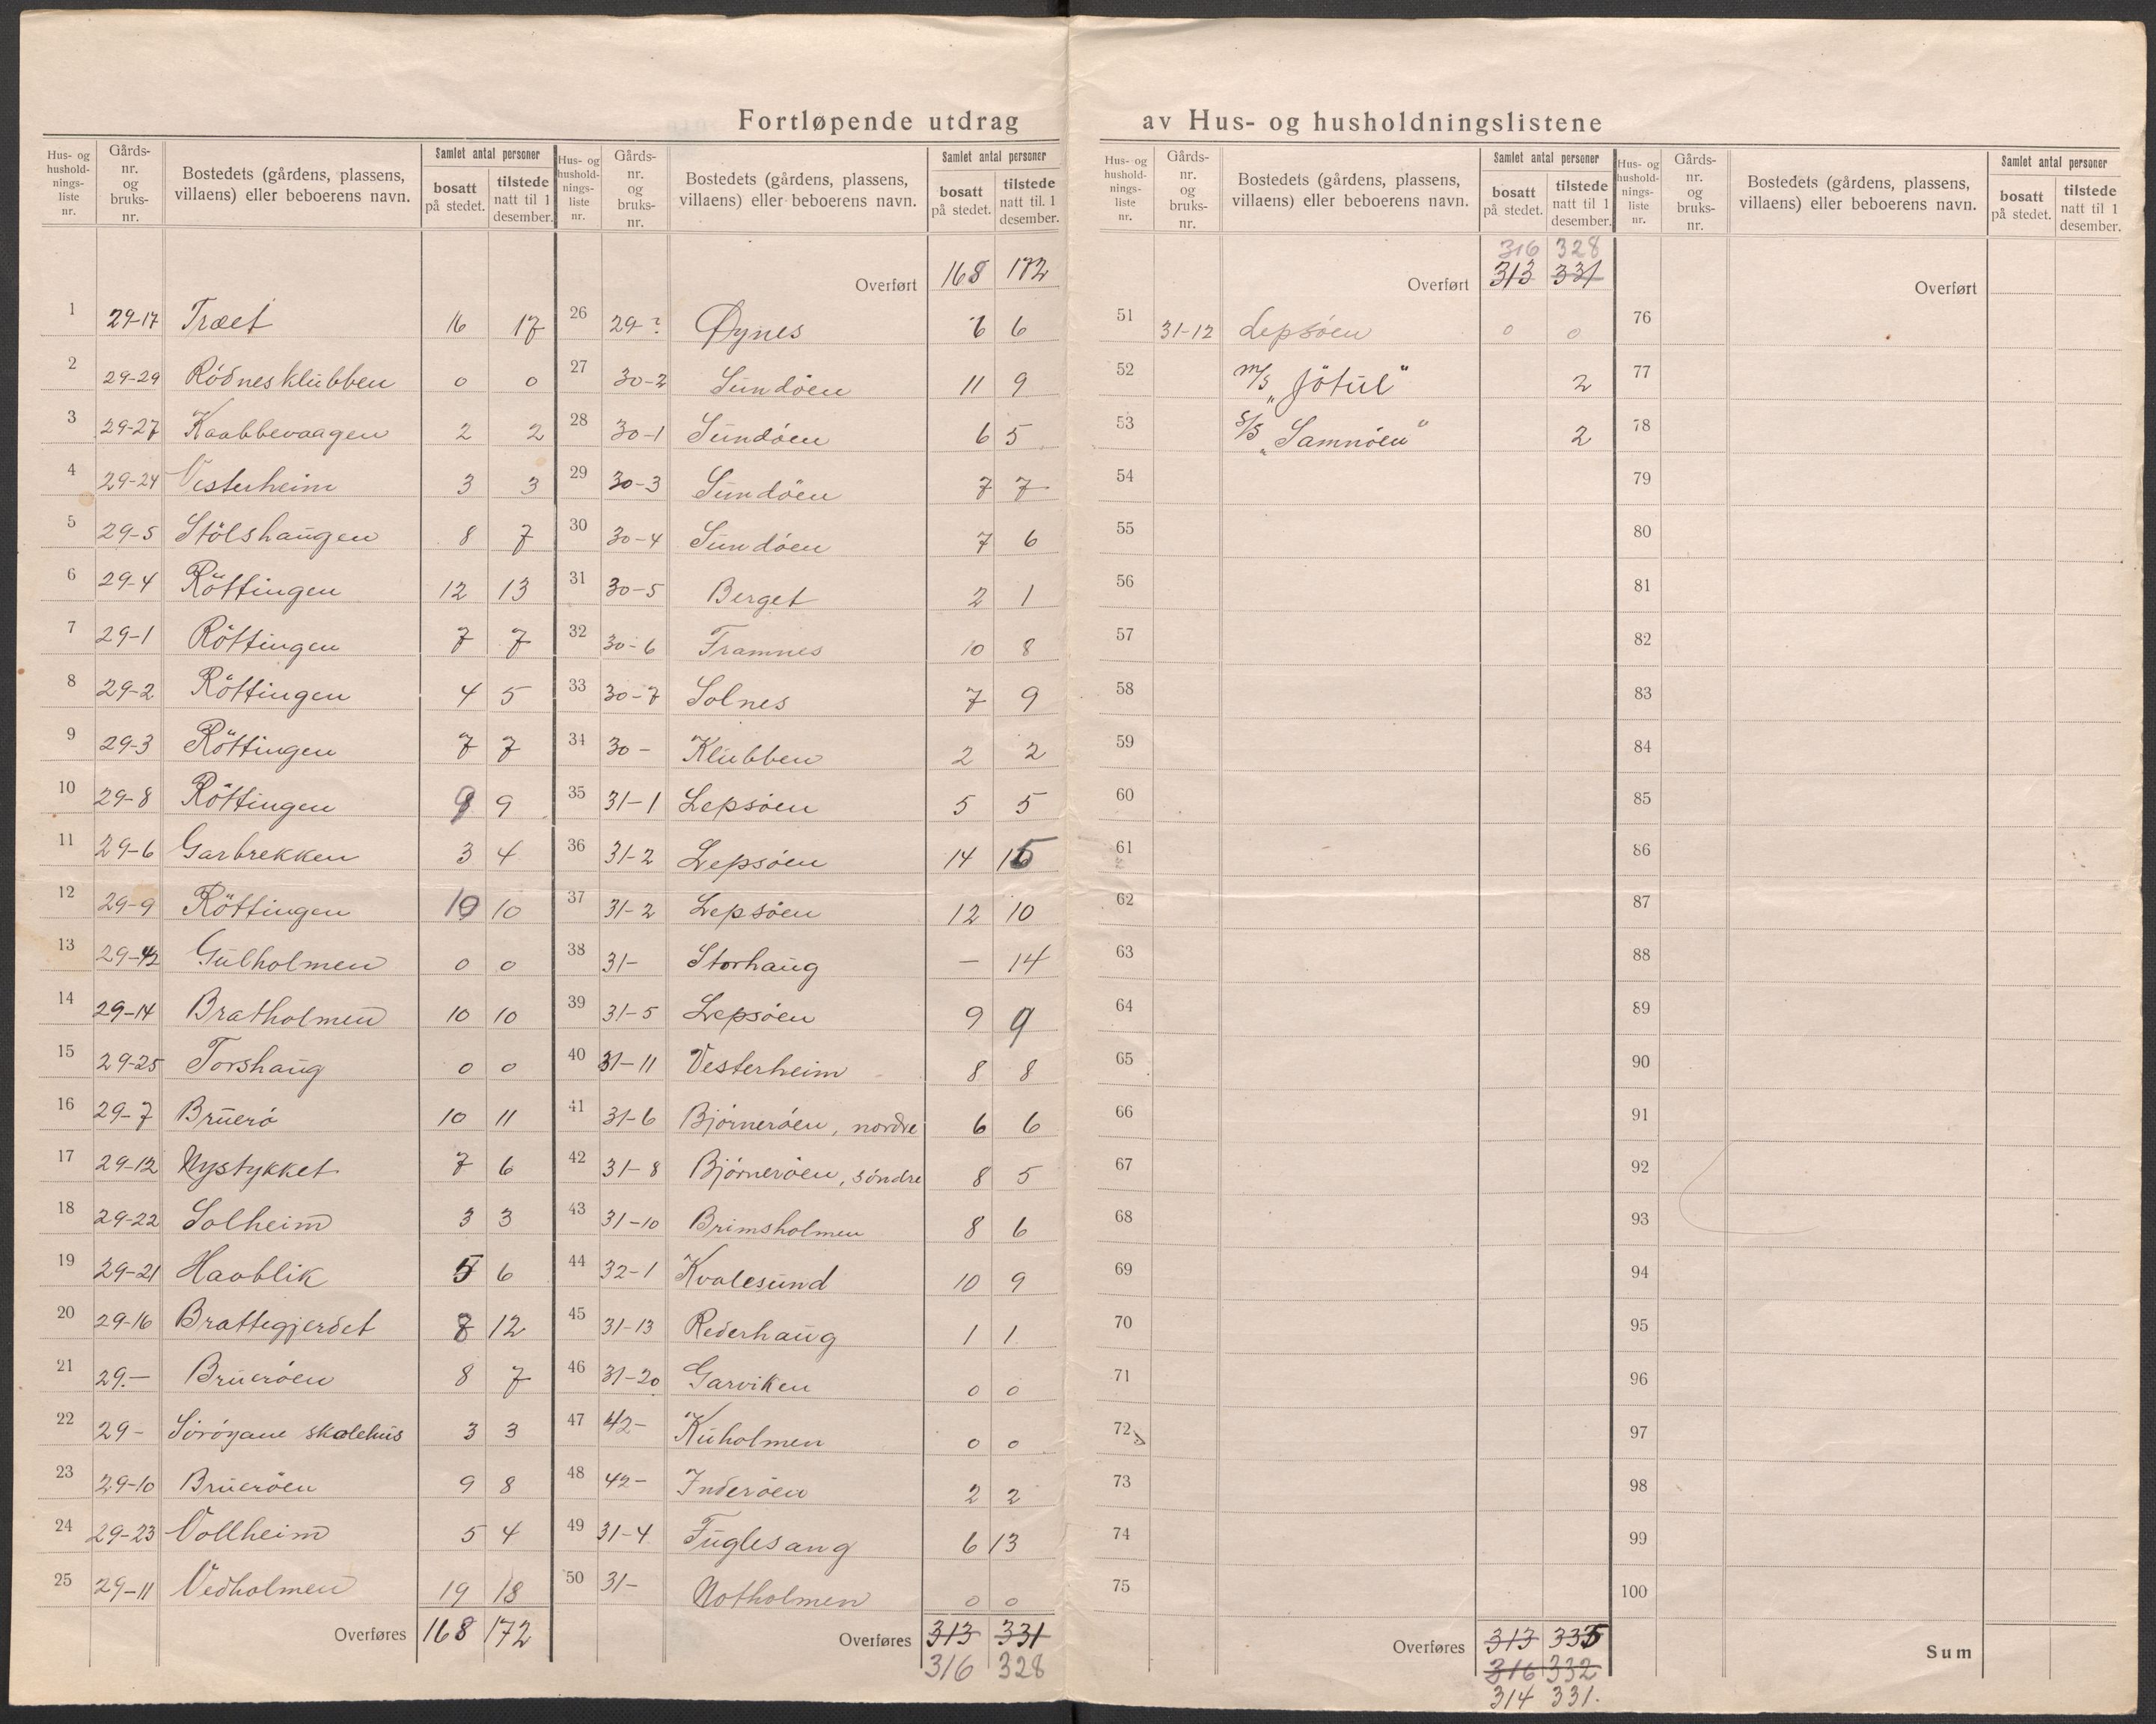 Fortløpende utdrag av Hus- og husholdningslistene
Hus- og hushold-nings-liste nr. | Gårds-nr. og bruks-nr. | Bostedets (gårdens, plassens, villaens) eller beboerens navn. | Samlet antal personer | bosatt på stedet. | tilstede natt til 1 desember.
1 29-17 Træet 16 17
2 29-29 Rödnesklubben 0 0
3 29-27 Kaabbevaagen 2 2
4 29-24 Vesterheim 3 3
5 29-5 Stölshaugen 8 7
6 29-4 Röttingen 12 13
7 29-1 Röttingen 7 7
8 29-2 Röttingen 4 5
9 29-3 Röttingen 7 7
10 29-8 Röttingen 9 9
11 29-6 Garbrekken 3 4
12 29-9 Röttingen 10 10
13 29-42 Gulholmen 0 0
14 29-14 Bratholmen 10 10
15 29-25 Torshaug 0 0
16 29-7 Bruerö 10 11
17 29-12 Nystykket 7 6
18 29-22 Solheim 3 3
19 29-21 Havblik 5 6
20 29-16 Brattegjerdet 8 12
21 29.- Brueröen 8 7
22 29- Söröyane skolehus 3 3
23 29-10 Brueröen 9 8
24 29-23 Vollheim 5 4
25 29-11 Vedholmen 19 18
Overføres 168 172
Hus- og hushold-nings-liste nr. | Gårds-nr. og bruks-nr. | Bostedets (gårdens, plassens, villaens) eller beboerens navn. | Samlet antal personer | bosatt på stedet. | tilstede natt til 1 desember.
Overført 168 172
26 29-? Øynes 6 6
27 30-2 Sundöen 11 9
28 30-1 Sundöen 6 5
29 30-3 Sundöen 7 7
30 30-4 Sundöen 7 6
31 30-5 Berget 2 1
32 30-6 Framnes 10 8
33 30-7 Solnes 7 9
34 30- Klubben 2 2
35 31-1 Lepsöen 5 5
36 31-2 Lepsöen 14 15
37 31-2 Lepsöen 12 10
38 31- Storhaug — 14
39 31-5 Lepsöen 9 9
40 31-11 Vesterheim 8 8
41 31-6 Björneröen, nordre 6 6
42 31-8 Björneröen, söndre 8 5
43 31-10 Brimsholmen 8 6
44 32-1 Kvalesund 10 9
45 31-13 Rederhaug 1 1
46 31-20 Garviken 0 0
47 42- Kuholmen 0 0
48 42- Inderöen 2 2
49 31-4 Fuglesang 6 13
50 31- Notholmen 0 0
Overføres 313 331
316 328
Hus- og hushold-nings-liste nr. | Gårds-nr. og bruks-nr. | Bostedets (gårdens, plassens, villaens) eller beboerens navn. | Samlet antal personer | bosatt på stedet. | tilstede natt til 1 desember.
316 328
Overført 313 331
51 31-12 Lepsöen 0 0
52 m/s „Jötul" 2
53 s/s „Samnöen" 2
54
55
56
57
58
59
60
61
62
63
64
65
66
67
68
69
70
71
72
73
74
75
Overføres 313 335
316 332
314 331.
Hus- og hushold-nings-liste nr. | Gårds-nr. og bruks-nr. | Bostedets (gårdens, plassens, villaens) eller beboerens navn. | Samlet antal personer | bosatt på stedet. | tilstede natt til 1 desember.
Overført
76
77
78
79
80
81
82
83
84
85
86
87
88
89
90
91
92
93
94
95
96
97
98
99
100
Sum